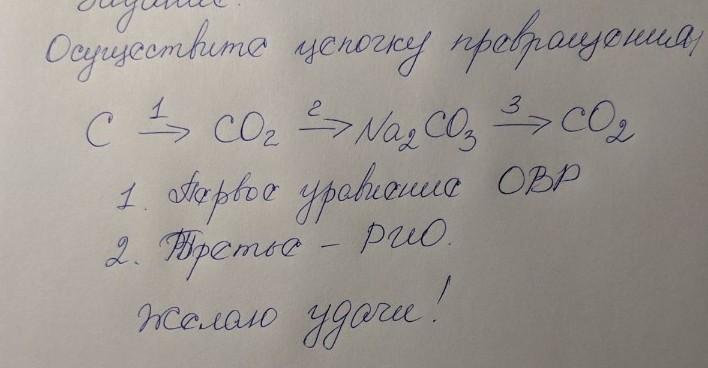 Задание.
Осуществите цепочку превращения
C 1→ CO₂ 2→ Na₂CO₃ 3→ CO₂
1. Первое уравнение ОВР
2. Третье – РИО.
Желаю удачи!